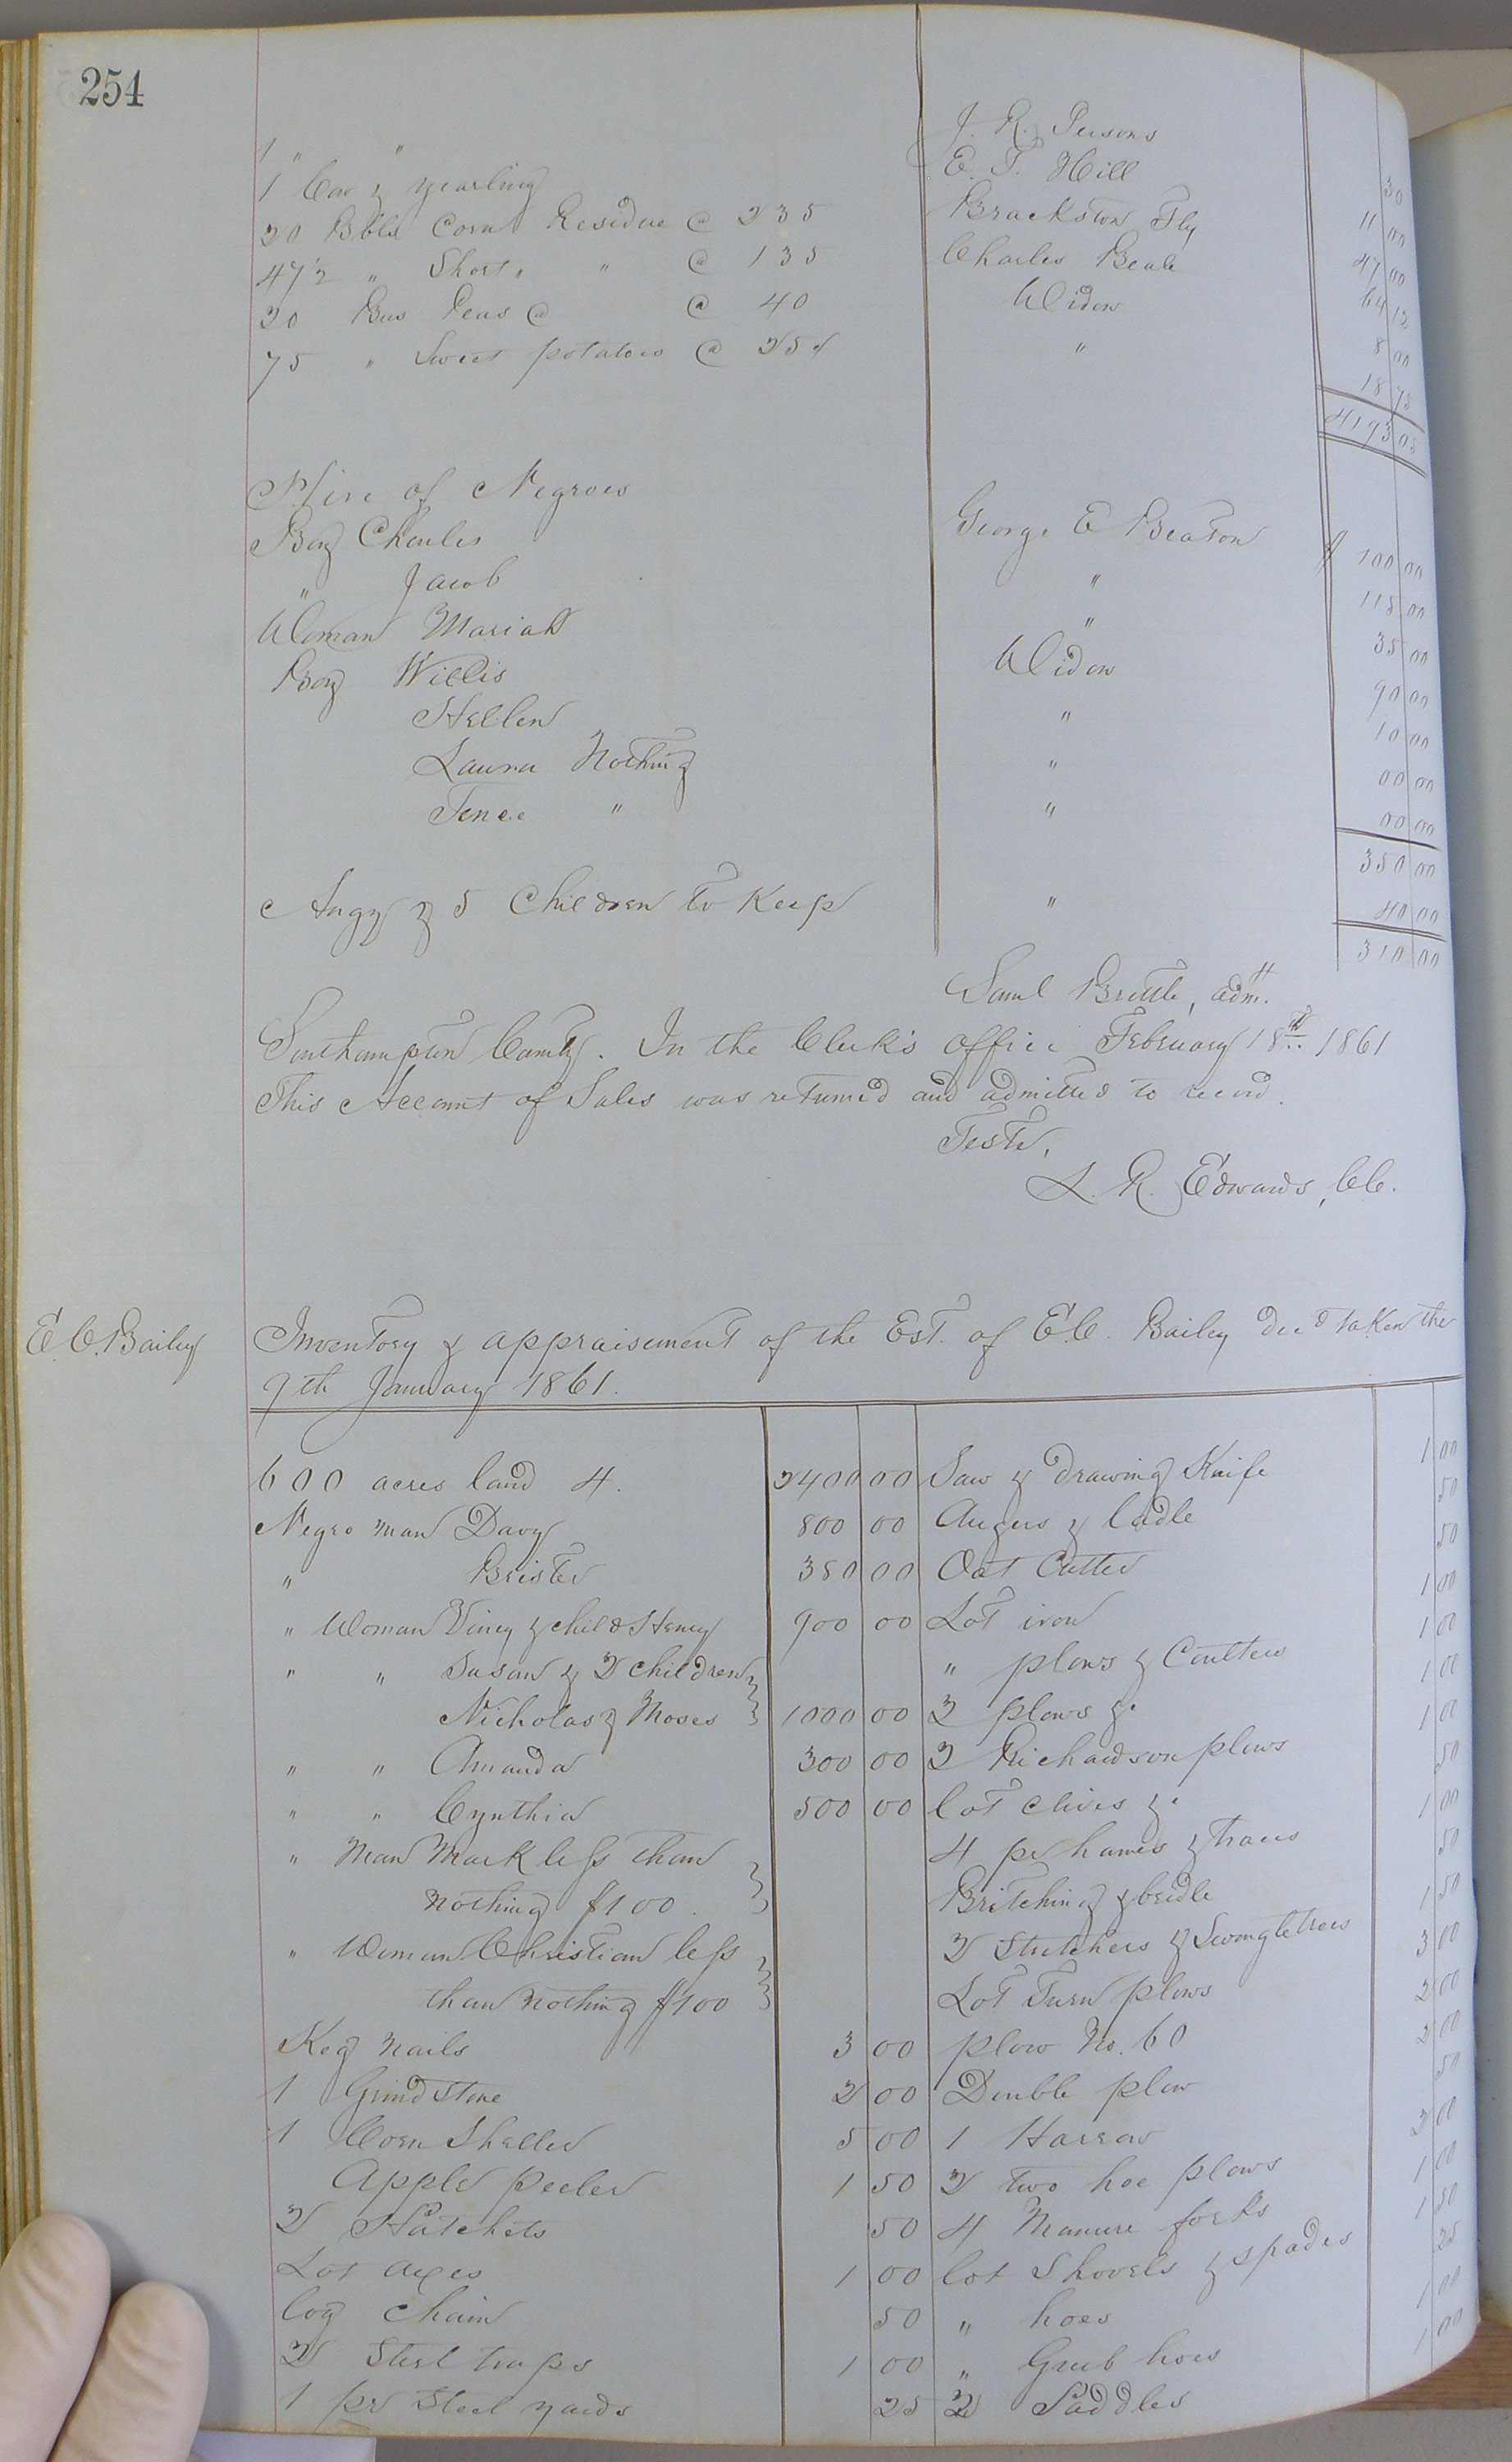 254
1 " " J. R. Persons 30
1 Cow & yearling E. T. Hill 11 00
20 Bbls Corn Residue @ 235 Brackston Fly 47 00
47½ " Short " " @ 135 Charles Beale 64 12
20 Bus Peas @ @ 40 Widow 8 00
75 " Sweet potatoes @ 25¢ " 18 75
4193 05
Hire of Negroes
Boy Charles George E Beaton $ 100 00
" Jacob " 115 00
Woman Mariah " 35 00
Boy Willis Widow 90 00
Hellen " 10 00
Laura Nothing " 00 00
Fence " " 00 00
350 00
Angy & 5 Children to Keep " 40 00
310 00
Saml Brittle, adm.
Southampton County. In the Clerk's Office February 18th 1861
This Account of Sales was returned and admitted to record.
Teste,
L. R. Edwards, CC.
E. C. Bailey
Inventory & appraisement of the Est. of E. C. Bailey decd taken the
9th January 1861.
600 acres land 4. 2400 00 Saw & drawing Knife 1 00
Negro man Davy 800 00 Augers & ladle 50
" Brister 350 00 Oat Cutter 50
" Woman Viney & child Henry 900 00 Lot iron 1 00
" " Susan & 2 children " plows & Coulters 1 00
Nicholas & Moses 1000 00 3 plows &c 1 00
" " Amanda 300 00 3 Richardson plows 1 00
" " Cynthia 500 00 lot clives &c 50
" Man Mark less than 4 pr hames & traces 1 00
nothing $100. Britching & bridle 50
" Woman Christian less 2 Stretchers & Swingletrees 1 50
than nothing $100 Lot Turn plows 3 00
Keg nails 3 00 plow No. 60 2 00
1 Grind stone 2 00 Double plow 2 00
1 Corn Sheller 5 00 1 Harrow 50
Apple peeler 1 50 2 two hoe plows 2 00
2 Hatchets 50 4 Manure forks 1 00
Lot axes 1 00 lot Shovels & spades 1 50
log chain 50 " hoes 25
2 Steel traps 1 00 " Grub hoes 1 00
1 pr Steel yards 25 2 Saddles 1 00